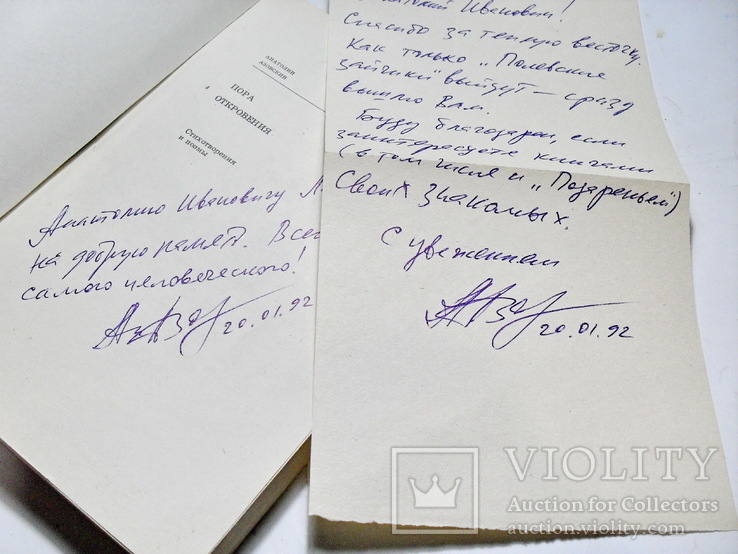 АНАТОЛИЙ
АЗОВСКИЙ
ПОРА
ОТКРОВЕНИЯ
Стихотворения
и поэмы
Анатолию Ивановичу
на добрую память. Все
самого человеческого!
20.01.92
Иванович!
Спасибо за теплую весточку.
Как только „Полевские
зайчики" выйдут — сразу
вышлю Вам.
Буду благодарен, если
заинтересуете книгами
(в том числе и „Позареньем")
своих знакомых.
С уважением
20.01.92
VIOLITY
Auction for Collectors
auction.violity.com